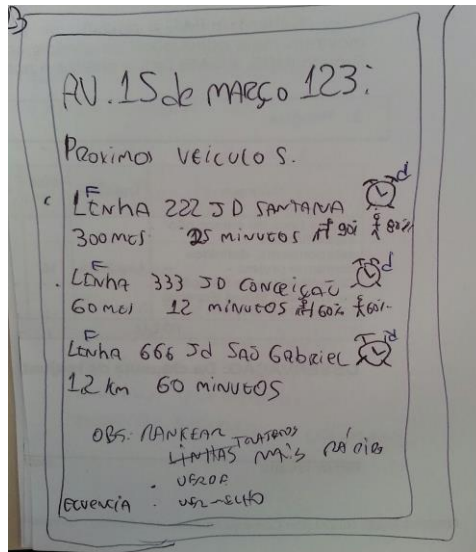 AV. 15 de MARÇO 123:
PROXIMOS VEÍCULOS.
F
LINHA 222 JD SANTANA d
300MES 25 MINUTOS 90% 80%
F
LINHA 333 JD CONCEIÇÃO d
60MES 12 MINUTOS 60% 60%
F
LINHA 666 Jd SAO GABRIEL d
1.2 Km 60 MINUTOS
OBS: RANKEAR
LINHAS MAIS
. VERDE
. VERMELHO